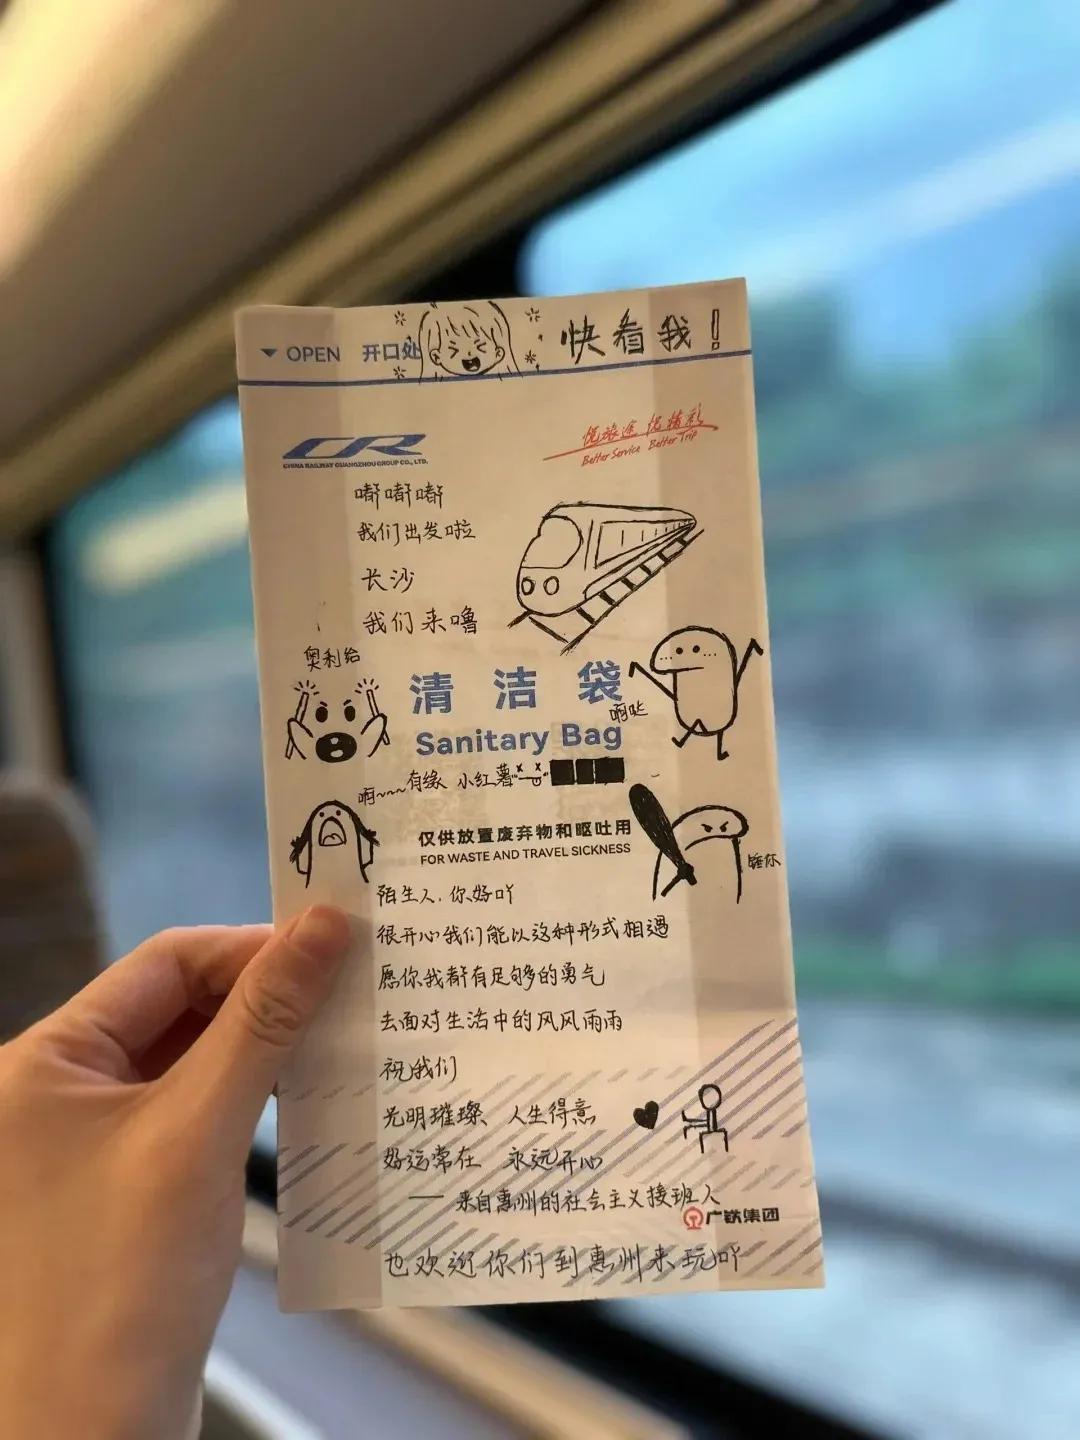 ▼ OPEN 开口处
快看我！
CR
CHINA RAILWAY GUANGZHOU GROUP CO., LTD.
悦旅途 悦精彩
Better Service Better Trip
嘟嘟嘟
我们出发啦
长沙
我们来噜
奥利给
清洁袋
啊哒
Sanitary Bag
啊~~~有缘 小红薯
仅供放置废弃物和呕吐用
FOR WASTE AND TRAVEL SICKNESS
锤你
陌生人，你好吖
很开心我们能以这种形式相遇
愿你我都有足够的勇气
去面对生活中的风风雨雨
祝我们
光明璀璨、人生得意
好运常在 永远开心
—— 来自惠州的社会主义接班人
广铁集团
也欢迎你们到惠州来玩吖